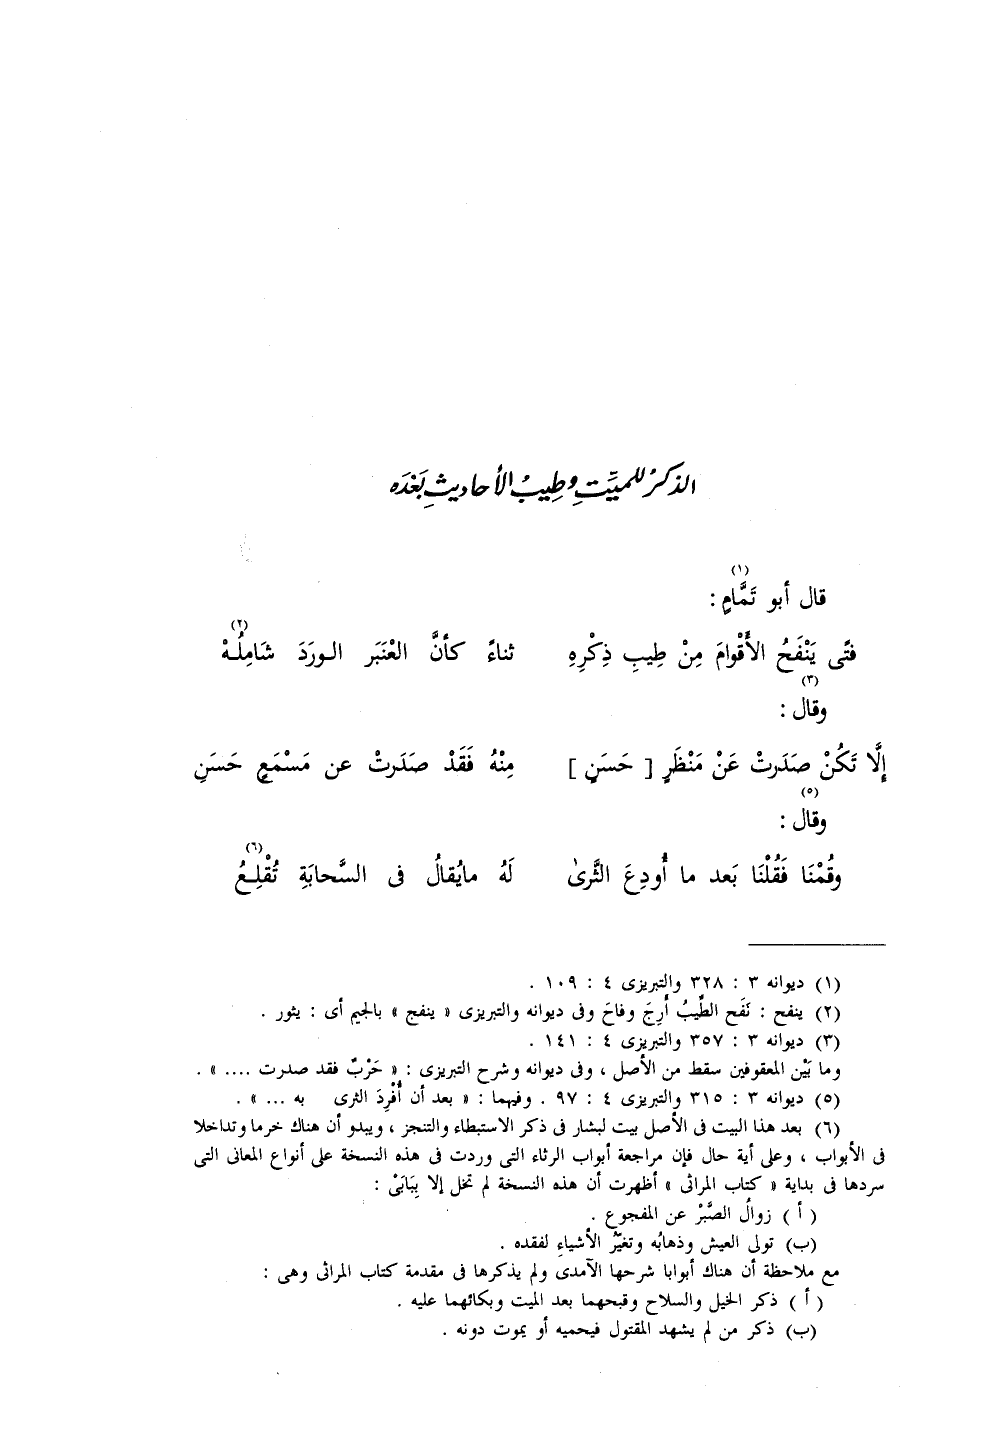 الذكرُ للميِّتِ وطِيبُ الأحاديثِ بَعْدَه
(١)
قال أبو تَمَّامٍ :
(٢)
فتًى يَنْفَحُ الأَقْوامَ مِنْ طِيبِ ذِكْرِهِ ثناءً كأنَّ العْنَبَر الـورَدَ شَامِلُـهْ
(٣)
وقال :
إلَّا تَكُنْ صَدَرتْ عَنْ مَنْظَرٍ [ حَسَنٍ ] مِنْهُ فَقَدْ صَدَرتْ عن مَسْمَعٍ حَسَنِ
(٥)
وقال :
(٦)
وقُمْنَا فَقُلْنَا بَعد ما أُودِعَ الثَّرىٰ لَهُ مايُقالُ فى السَّحابَةِ تُقْلِـعُ
(١) ديوانه ٣ : ٣٢٨ والتبريزى ٤ : ١٠٩ .
(٢) ينفح : نَفَح الطِّيبُ أَرِجَ وفاحَ وفى ديوانه والتبريزى « ينفج » بالجيم أى : يثور .
(٣) ديوانه ٣ : ٣٥٧ والتبريزى ٤ : ١٤١ .
وما بَيْن المعقوفين سقط من الأصل ، وفى ديوانه وشرح التبريزى : « حَرْبٌ فقد صدرت .... » .
(٥) ديوانه ٣ : ٣١٥ والتبريزى ٤ : ٩٧ . وفيهما : « بعد أن أُفْرِدَ الثرى به ... » .
(٦) بعد هذا البيت فى الأصل بيت لبشار فى ذكر الاستبطاء والتنجز ، ويبدو أن هناك خرما وتداخلا
فى الأبواب ، وعلى أية حال فإن مراجعة أبواب الرثاء التى وردت فى هذه النسخة على أنواع المعانى التى
سردها فى بداية « كتاب المراثى » أظهرت أن هذه النسخة لم تخل إلا بِبَابَىْ :
( أ ) زوالُ الصَّبْرْ عن المفجوع .
(ب) تولى العيش وذهابُه وتغيّرُ الأشياءِ لفقده .
مع ملاحظة أن هناك أبوابا شرحها الآمدى ولم يذكرها فى مقدمة كتاب المراثى وهى :
( أ ) ذكر الخيل والسلاح وقبحهما بعد الميت وبكائهما عليه .
(ب) ذكر من لم يشهد المقتول فيحميه أو يموت دونه .